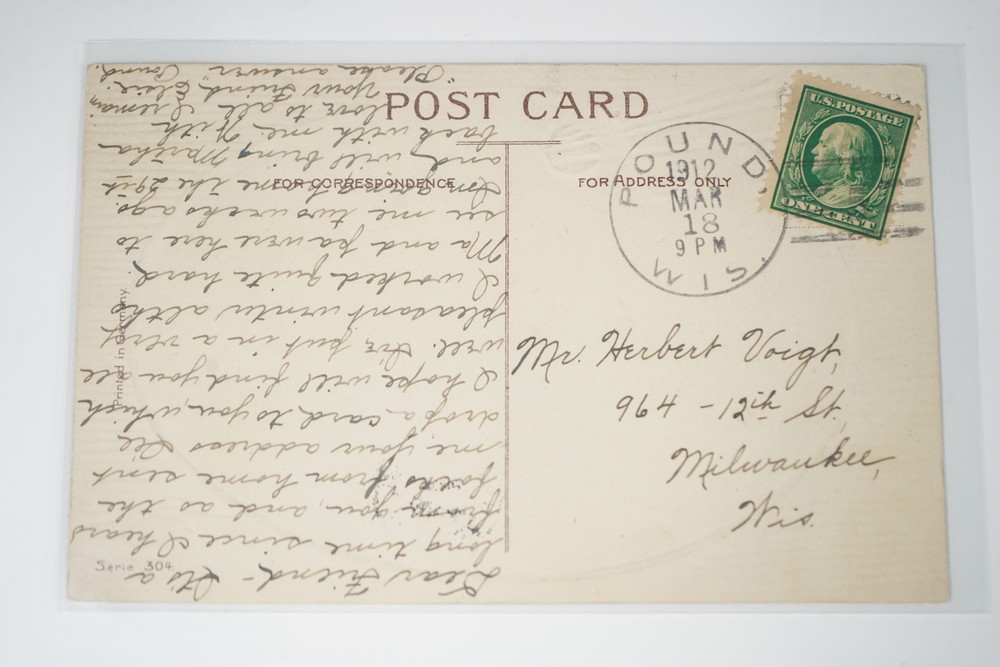 POST CARD
FOR CORRESPONDENCE
FOR ADDRESS ONLY
U.S. POSTAGE
ONE CENT
POUND, WIS.
1912
MAR
18
9 PM
Mr. Herbert Voigt,
964 - 12th St,
Milwaukee,
Wis.
Printed in Germany.
Serie 304
Dear Friend - It's a
long time since I heard
from you, and as the
folks from home sent
me your address I'll
drop a card to you, which
I hope will find you all
well. I've put in a very
pleasant winter altho
I worked quite hard.
Ma and Pa were here to
see me two weeks ago.
going home the 29
and will bring Martha
back with me. With
love to all I remain,
Your Friend, Elsie.
"Please answer" Pound.